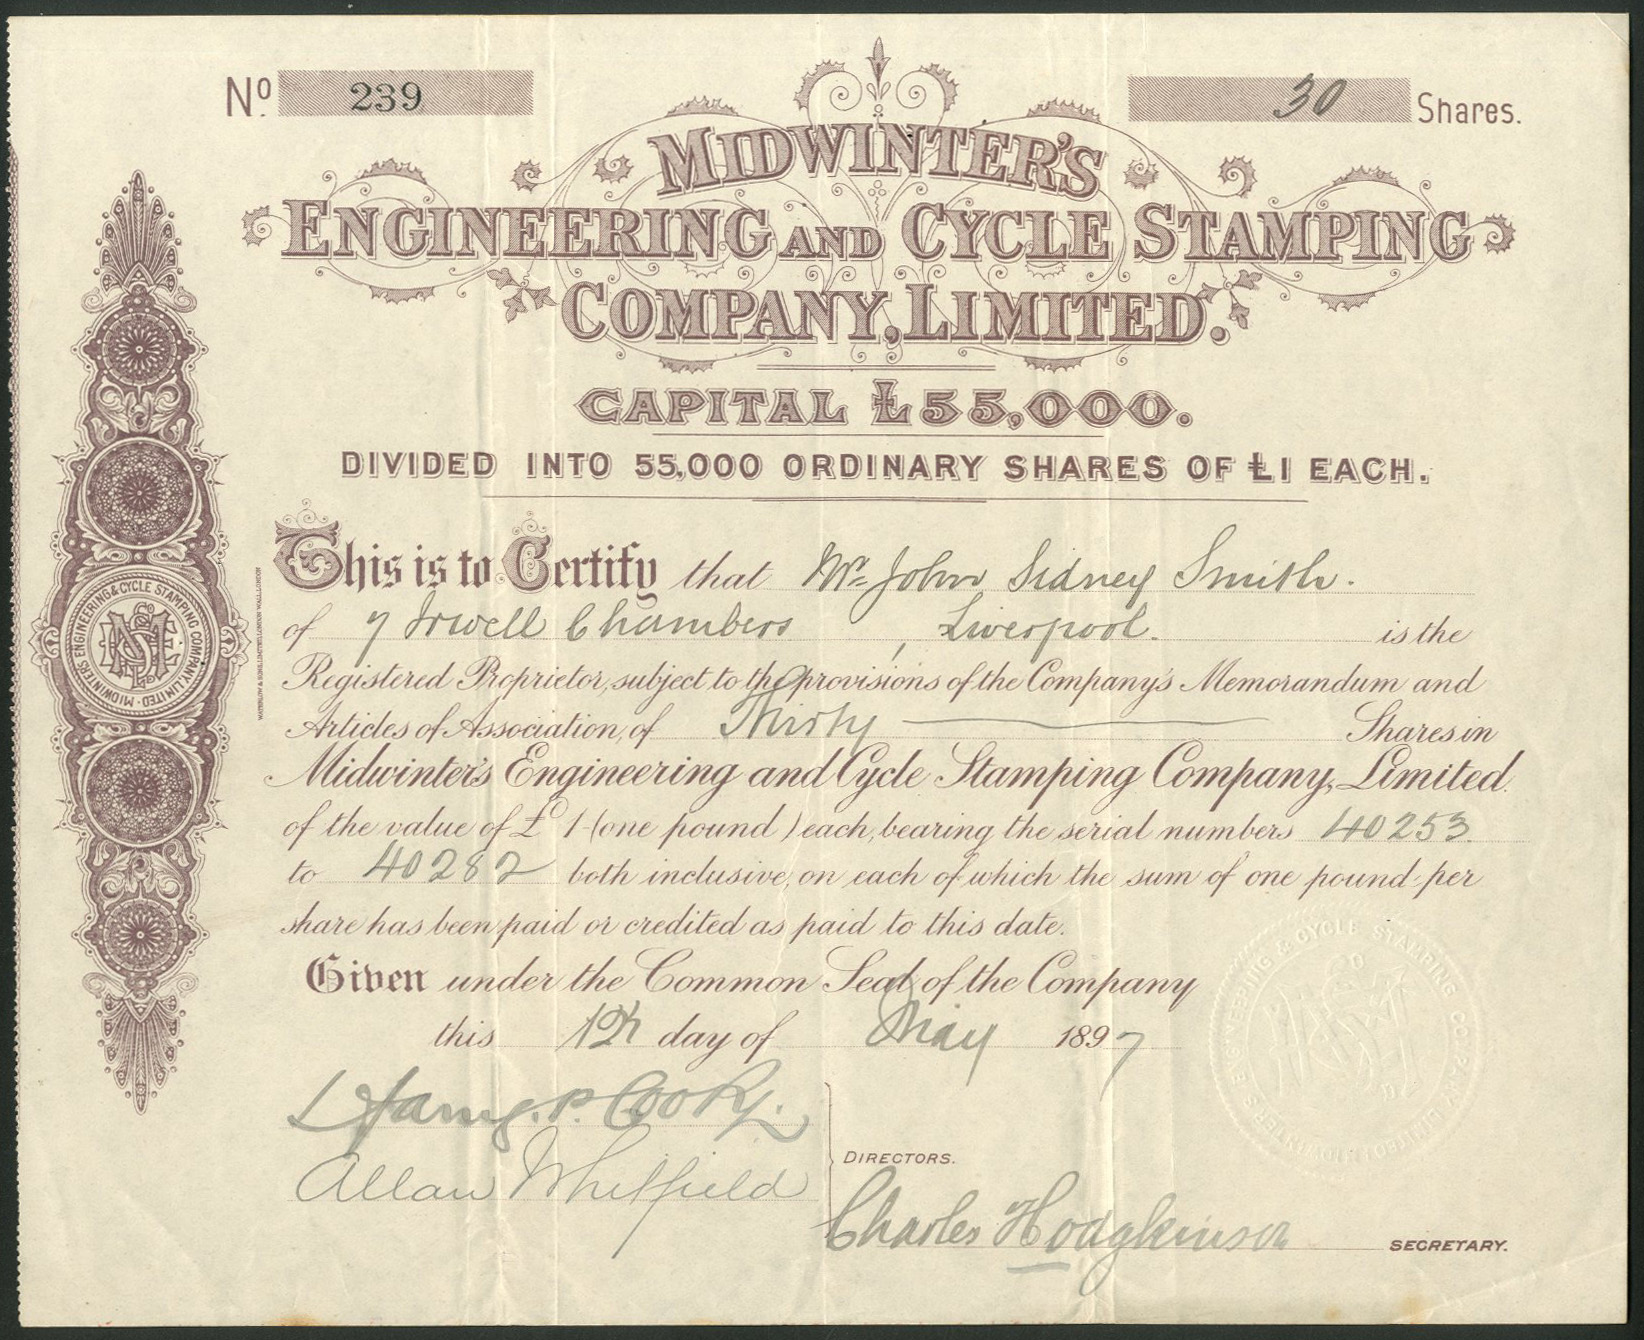 No. 239
30 Shares.
MIDWINTER'S
ENGINEERING AND CYCLE STAMPING
COMPANY, LIMITED.
CAPITAL £55,000.
DIVIDED INTO 55,000 ORDINARY SHARES OF £1 EACH.
This is to Certify that Mr. John Sidney Smith.
of 7 Irwell Chambers, Liverpool. is the
Registered Proprietor, subject to the provisions of the Company's Memorandum and
Articles of Association, of Thirty Shares in
Midwinter's Engineering and Cycle Stamping Company, Limited.
of the value of £1 (one pound) each, bearing the serial numbers 40253
to 40282 both inclusive, on each of which the sum of one pound per
share has been paid or credited as paid to this date.
Given under the Common Seal of the Company
this 12th day of May 1897
Allan Whiffield
DIRECTORS.
Charles Hodgkinson
SECRETARY.
MIDWINTERS ENGINEERING & CYCLE STAMPING COMPANY, LIMITED
MIDWINTER'S ENGINEERING & CYCLE STAMPING COMPANY LIMITED